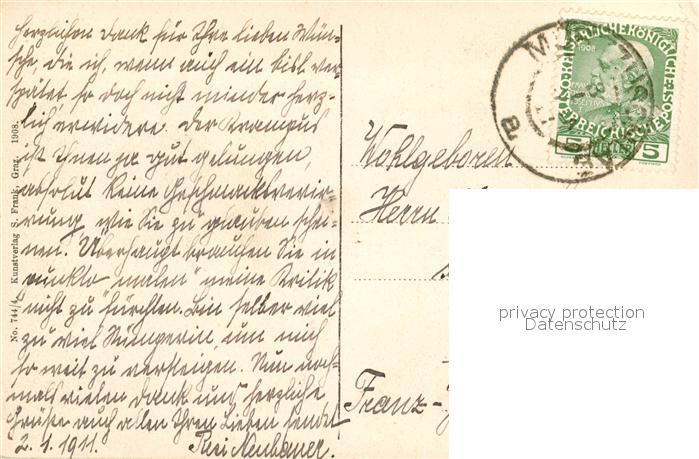 Herzlichen Dank für Ihre lieben Wün-
sche, die ich, wenn auch ein bisl ver
spätet, so doch nicht minder herz-
lich, erwidere. Der Krampus
ist Ihnen ja gut gelungen,
absolut keine Geschmacksverir-
rung, wie Sie zu glauben schei-
nen. Überhaupt brauchen Sie in
"punkto malen" meine Kritik
nicht zu fürchten. Bin selber viel
zu viel Stümperin, um mich
so weit zu versteigen. Nun noch-
mals vielen Dank und herzliche
Grüße auch allen Ihren Lieben sendet
2. 1. 1911. Resi Neubauer.
No. 744/4. Kunstverlag S. Frank, Graz. 1908.
Wohlgeboren
Herrn
Franz-
KAISERLICHEKÖNIGLICHE
1908
ÖSTERREICHISCHE POST
5
privacy protection
Datenschutz